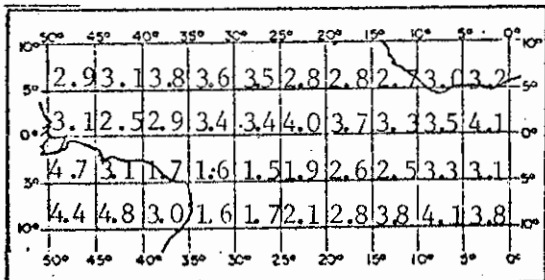 50° 45° 40° 35° 30° 25° 20° 15° 10° 5° 0°
10° 10°
2.9 3.1 3.8 3.6 3.5 2.8 2.8 2.7 3.0 3.2
5° 5°
3.1 2.5 2.9 3.4 3.4 4.0 3.7 3.3 3.5 4.1
0° 0°
4.7 3.1 1.7 1.6 1.5 1.9 2.6 2.5 3.3 3.1
5° 5°
4.4 4.8 3.0 1.6 1.7 2.1 2.8 3.8 4.1 3.8
10° 10°
50° 45° 40° 35° 30° 25° 20° 15° 10° 5° 0°